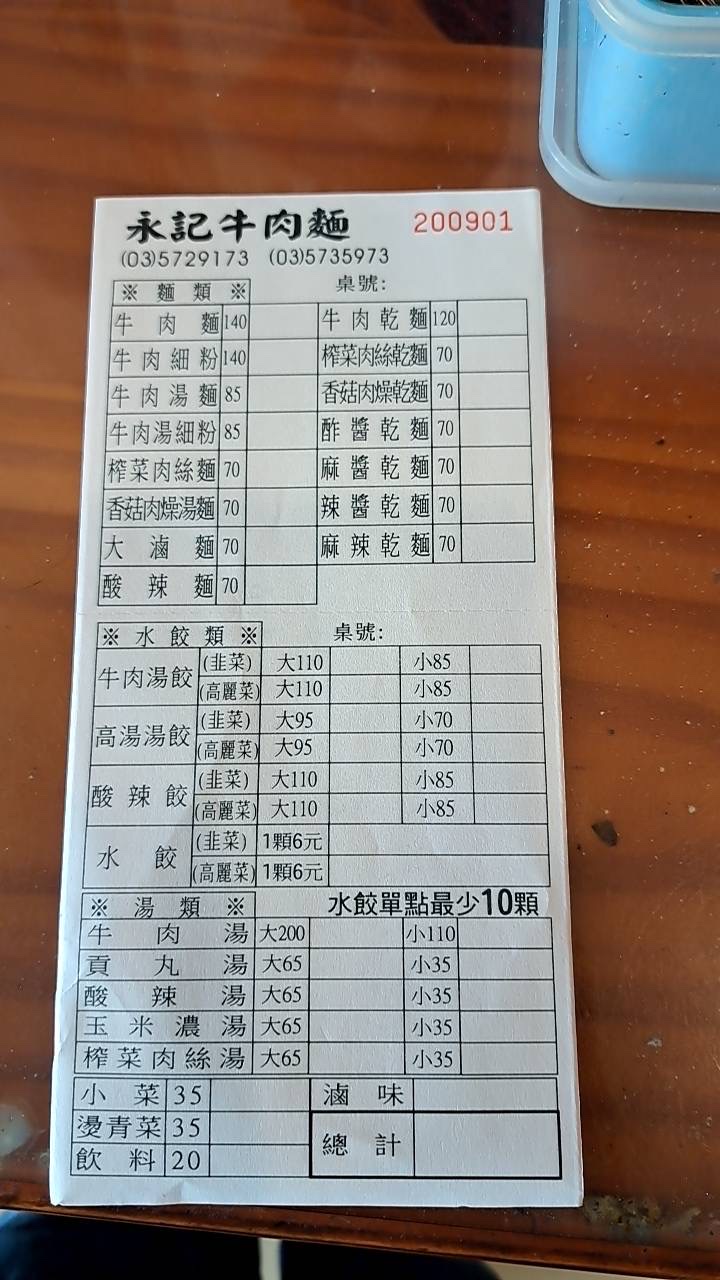 永記牛肉麵 200901
(03)5729173 (03)5735973
※ 麵 類 ※ 桌號:
牛肉麵 140 牛肉乾麵 120
牛肉細粉 140 榨菜肉絲乾麵 70
牛肉湯麵 85 香菇肉燥乾麵 70
牛肉湯細粉 85 酢醬乾麵 70
榨菜肉絲麵 70 麻醬乾麵 70
香菇肉燥湯麵 70 辣醬乾麵 70
大滷麵 70 麻辣乾麵 70
酸辣麵 70
※ 水餃類 ※ 桌號:
牛肉湯餃 (韭菜) 大110 小85
(高麗菜) 大110 小85
高湯湯餃 (韭菜) 大95 小70
(高麗菜) 大95 小70
酸辣餃 (韭菜) 大110 小85
(高麗菜) 大110 小85
水餃 (韭菜) 1顆6元
(高麗菜) 1顆6元
※ 湯類 ※ 水餃單點最少10顆
牛肉湯 大200 小110
貢丸湯 大65 小35
酸辣湯 大65 小35
玉米濃湯 大65 小35
榨菜肉絲湯 大65 小35
小菜 35 滷味
燙青菜 35 總計
飲料 20